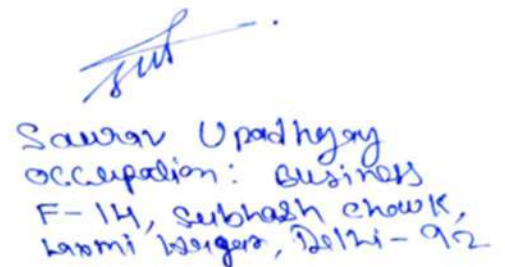 Saurav Upadhyay
Occupation: Business
F-14, Subhash Chowk,
Laxmi Nagar, Delhi-92